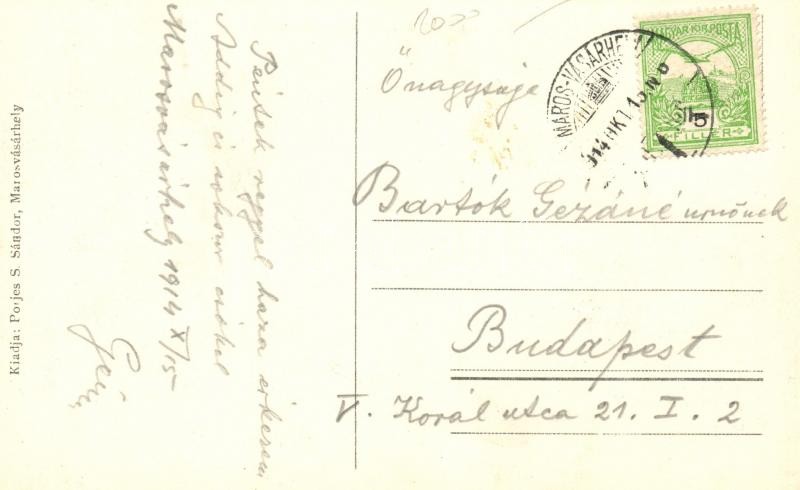 Kiadja: Porjes S. Sándor, Marosvásárhely
Marosvásárhely 1914 X/15
Addig is sokszor csókol
Péntek reggel haza érkezem
Géza
2000
Őnagysága
MAROS-VÁSÁRHELY
914 OKT 15
MAGYAR KIR. POSTA
5
FILLÉR
Bartók Gézáné urnőnek
Budapest
V. Korál utca 21. I. 2